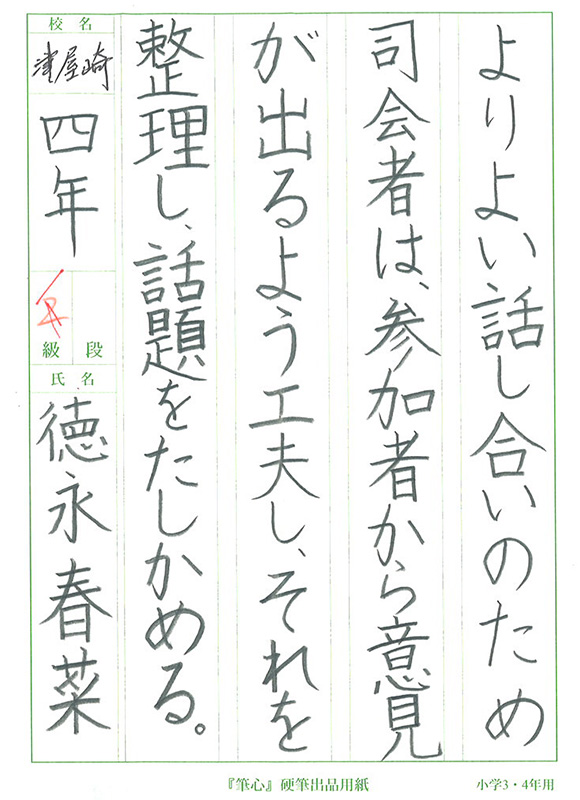 よりよい話し合いのため
司会者は、参加者から意見
が出るよう工夫し、それを
整理し、話題をたしかめる。
校名
津屋崎
四年
段
級
氏名
徳永春菜
『筆心』硬筆出品用紙
小学3・4年用